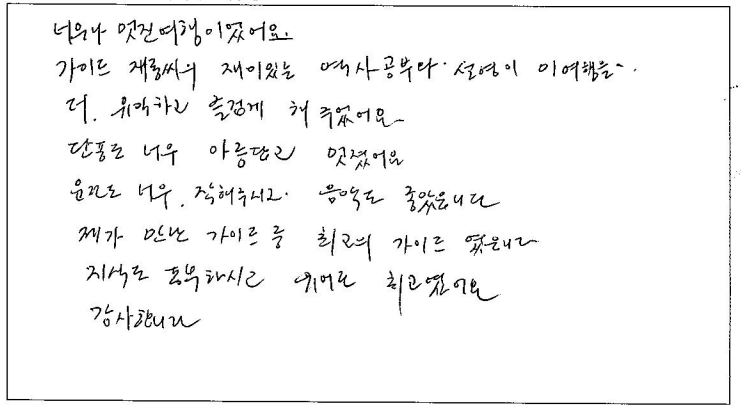 너무나 멋진여행이었어요.
가이드 재롱씨의 재미있는 역사공부와 설명이 이여행을
더, 유익하고 즐겁게 해 주었어요
단풍도 너무 아름답고 멋졌어요
운전도 너무, 잘해주시고 음악도 좋았읍니다
제가 만난 가이드 중 최고의 가이드 였읍니다
지식도 풍부하시고 유머도 최고였어요
감사합니다